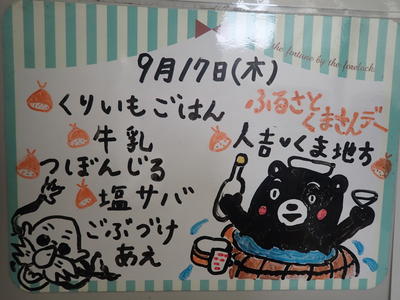 the fortune by the forelock.
9月17日(木)
くりいもごはん
牛乳
つぼんじる
塩サバ
ごぶづけ
あえ
ふるさと
くまさんデー
人吉♥くま地方